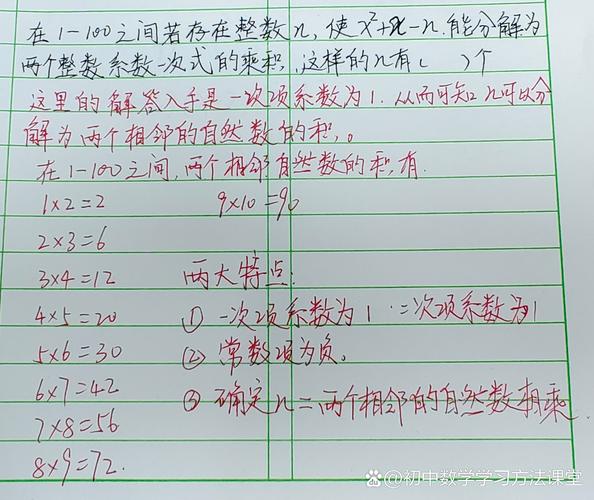 在1-100之间若存在整数n,使x²+x-n.能分解为
两个整数系数一次式的乘积,这样的n有( )个
这里的解答入手是一次项系数为1.从而可知n可以分
解为两个相邻的自然数的积,。
在1-100之间,两个相邻自然数的积,有.
1×2=2 9×10=90
2×3=6
3×4=12 两大特点:
4×5=20 ① 一次项系数为1 .二次项系数为1
5×6=30 ② 常数项为负。
6×7=42 ③ 确定n=两个相邻的自然数相乘
7×8=56
8×9=72.
初中数学学习方法课堂